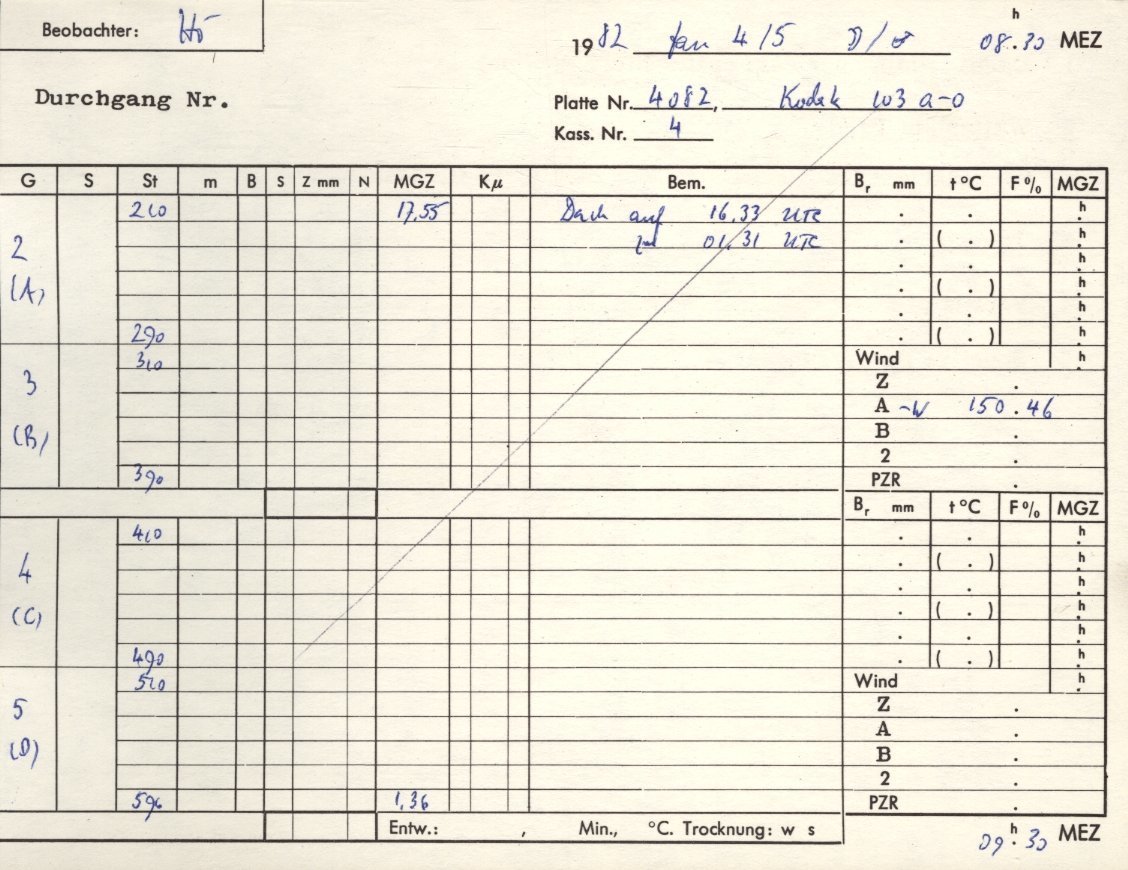 Beobachter: Hö
h
19 82 Jan 4/5 ☽/♂ 08.30 MEZ
Durchgang Nr.
Platte Nr. 4082, Kodak 103 a-0
Kass. Nr. 4
G S St m B S Z mm N MGZ Kμ Bem. Br mm t °C F% MGZ
210 17,55 Dach auf 16.33 UTC . . h.
2 zu 01.31 UTC . ( . ) h.
. . h.
(A) . ( . ) h.
. . h.
290 . ( . ) h.
310 Wind h.
3 Z .
A ~W 150.46
(B) B .
2 .
390 PZR .
Br mm t °C F% MGZ
410 . . h.
. ( . ) h.
4 . . h.
(C) . ( . ) h.
. . h.
490 . ( . ) h.
510 Wind h.
5 Z .
A .
(D) B .
2 .
590 1,36 PZR .
Entw.: , Min., °C. Trocknung: w s
09 h. 30 MEZ